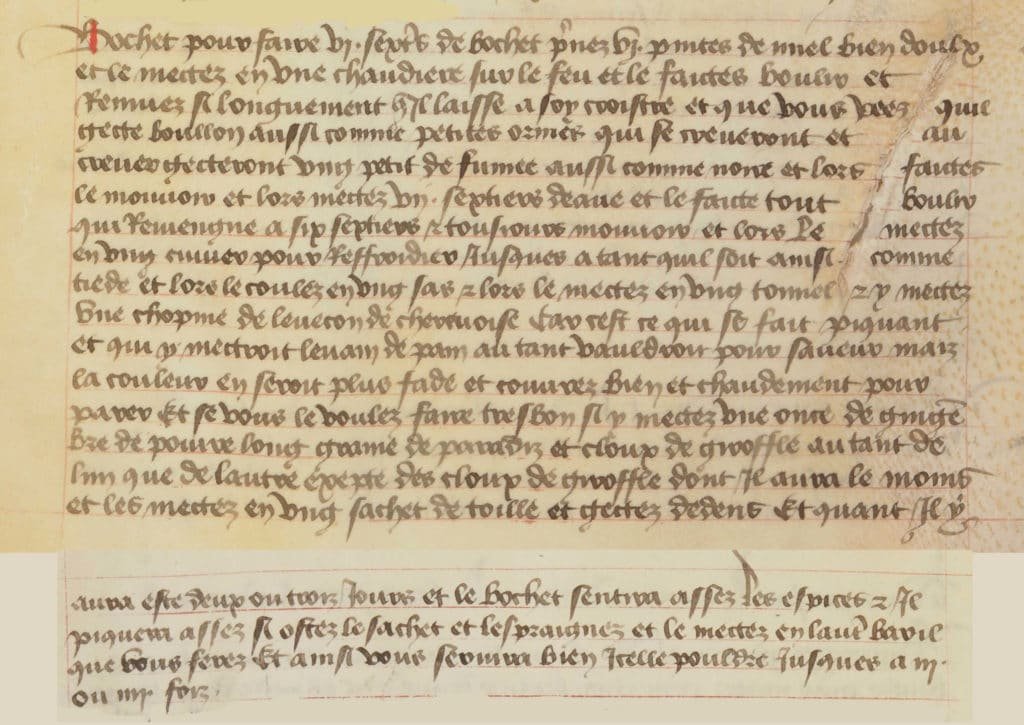 Bochet pour faire vj. sexts de bochet prnez vj. pintes de miel bien doulx
et le mectez en vne chaudiere sur le feu et le faictes boulir et
Remuez si longuement qil laisse a soy croistre et que vous veez quil
gecte boullon aussi comme petites ormes qui se creueront et au
creuer gecteront vng petit de fumee aussi comme noire et lors faictes
le mouuoir et lors mectez vij. septiers deaue et le faicte tout boulir
qui Reuiengne a six septiers & tousiours mouuoir et lors le mectez
en vng cuuier pour Reffroidier Jusques a tant quil soit ainsi. comme
tiede et lors le coulez en vng sas & lors le mectez en vng tonnel & y mectez
vne chopine de leuecon de cheruoise Car cest ce qui se fait piquant
et qui y mectroit leuain de pain autant vauldroit pour saueur maiz
la couleur en seroit plus fade et couurez bien et chaudement pour
parer Et se vous le voulez faire tresbon si y mectez vne once de gingē
bre de poiure long graine de paradiz et cloup de giroffle autant de
lun que de lautre exepte des cloup de giroffle dont Jl aura le moins
et les mectez en vng sachet de toille et gectez dedens Et quant Jl y
aura este deux ou troiz Jours et le bochet sentira assez les espices & Jl
piquera assez si ostez le sachet et lespraignez et le mectez en laut̄ baril
que vous ferez Et ainsi vous seruira bien Jcelle pouldre Jusques a iij.
ou iiij. foiz.